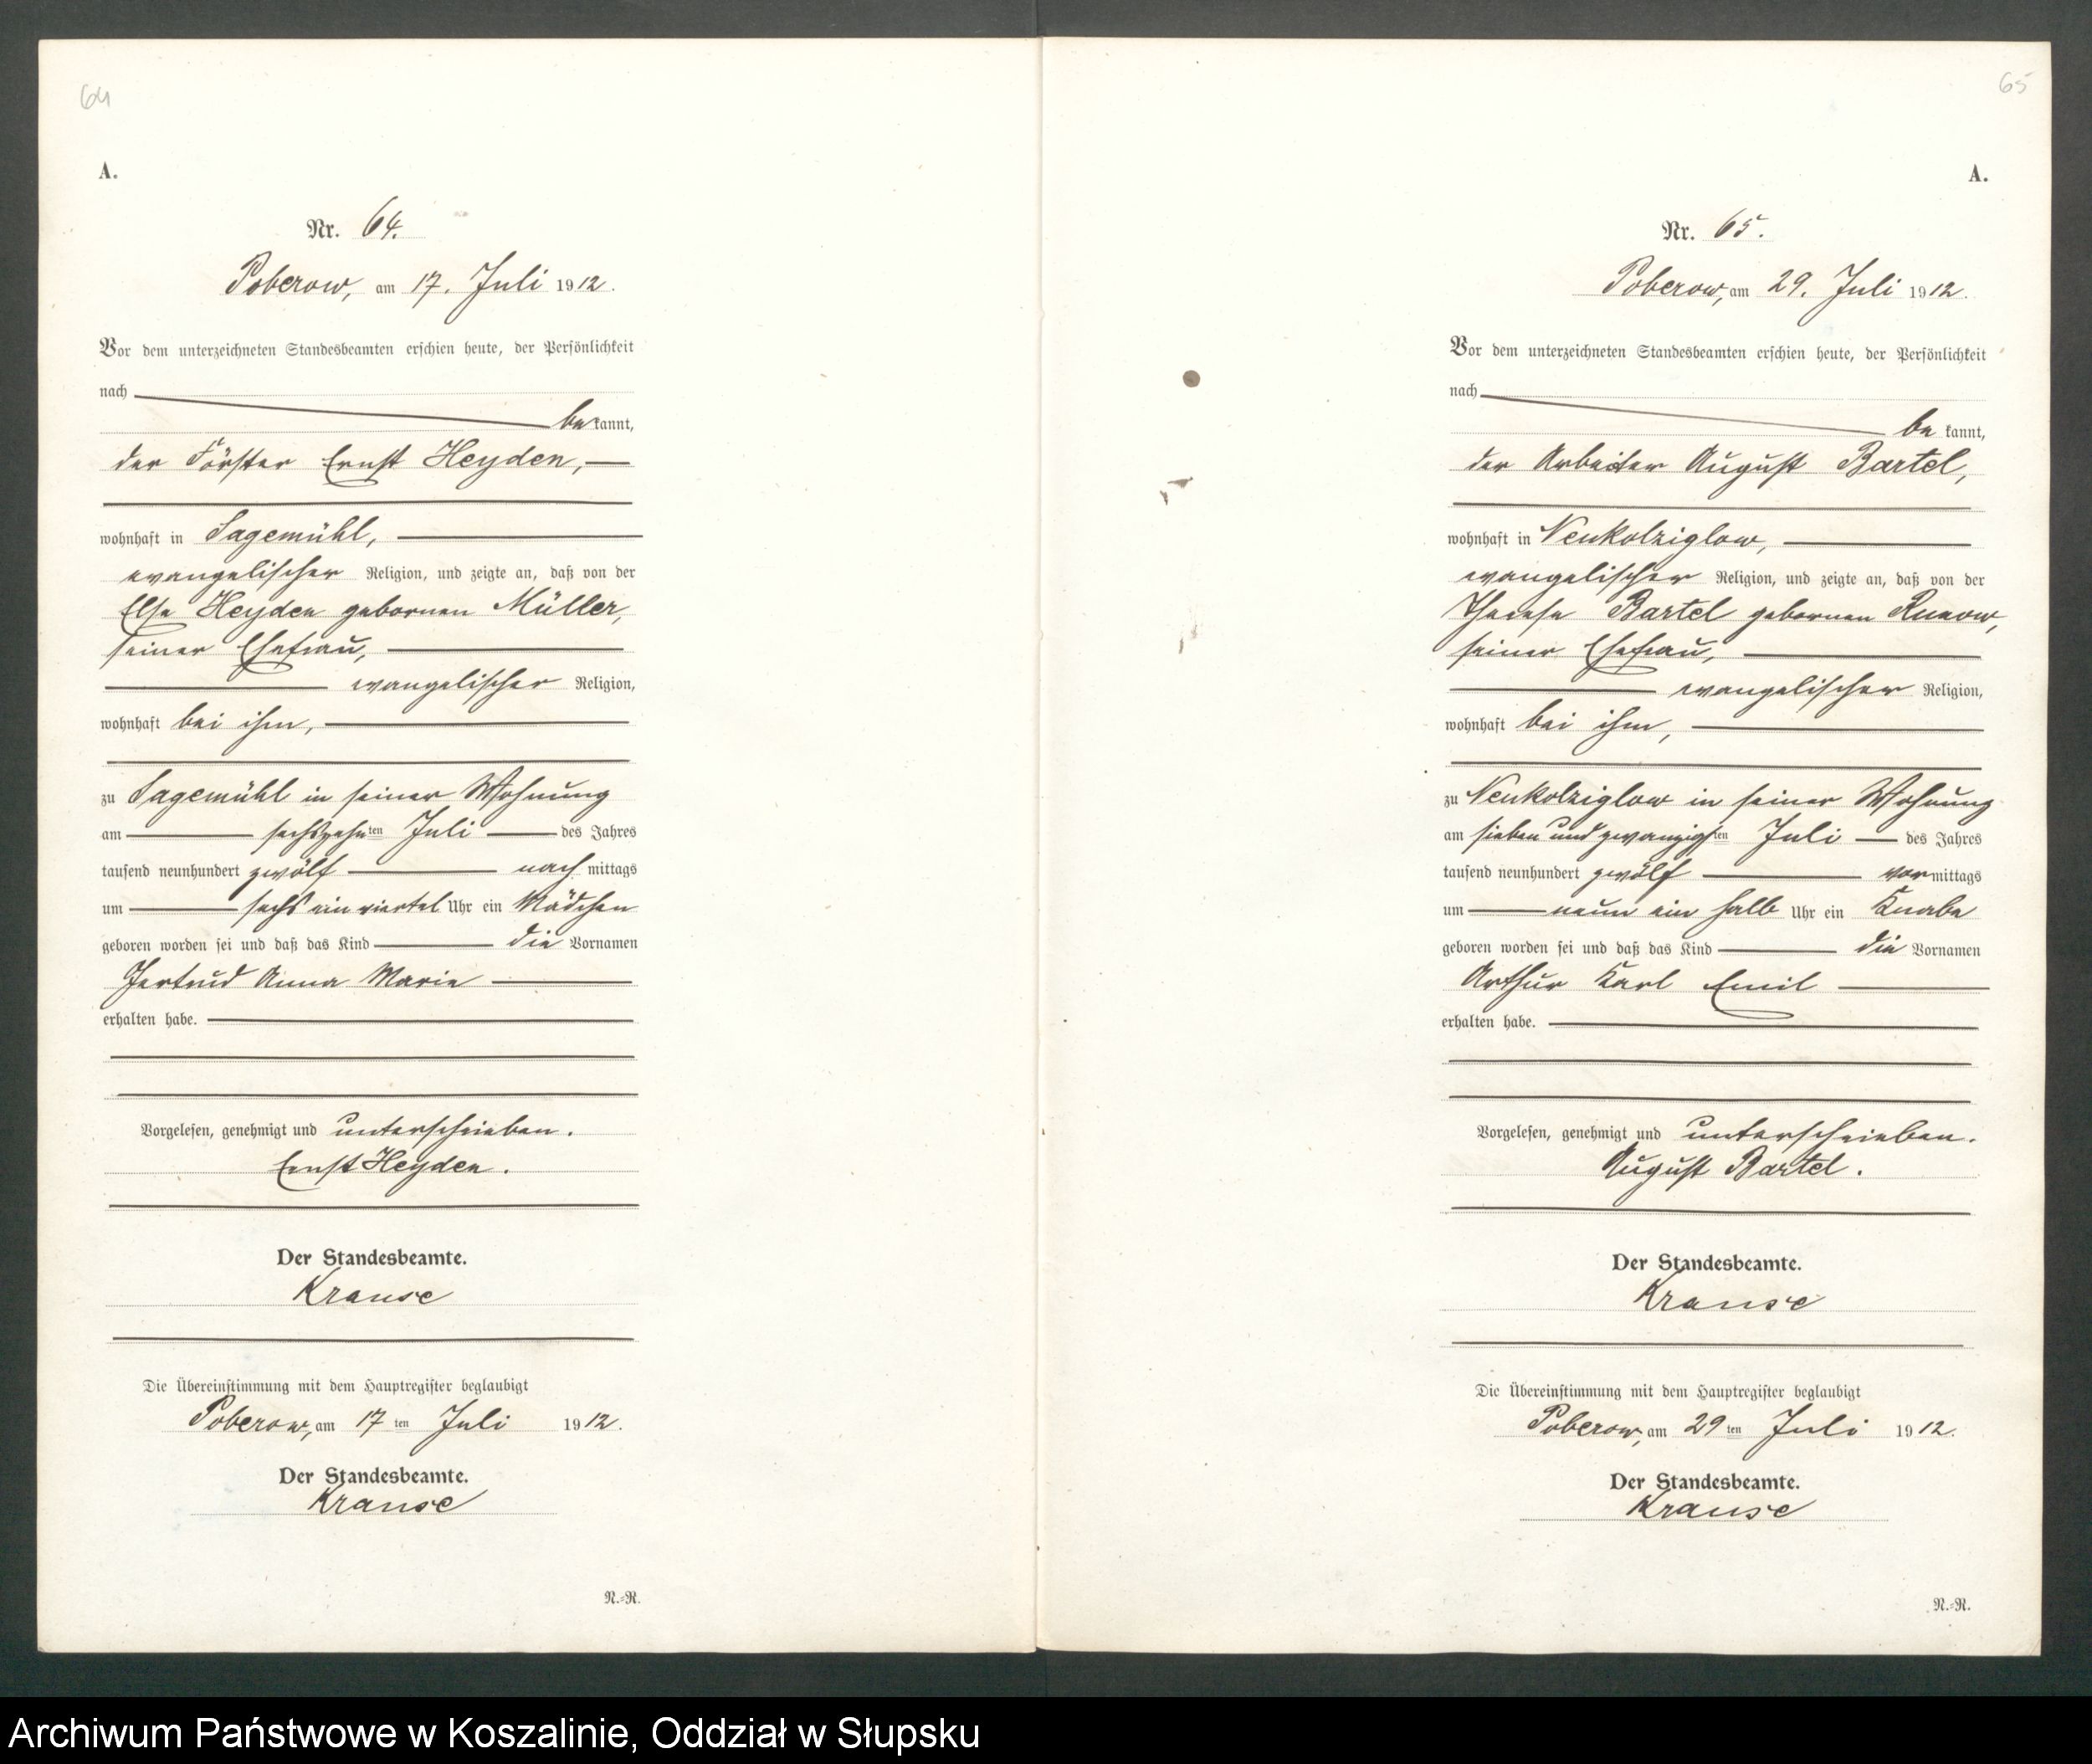 64
A.
Nr. 64.
Poberow, am 17. Juli 1912.
Vor dem unterzeichneten Standesbeamten erschien heute, der Persönlichkeit
nach
bekannt,
der Förster Ernst Heyden,
wohnhaft in Sagemühl,
evangelischer Religion, und zeigte an, daß von der
Else Heyden gebornen Müller,
seiner Ehefrau,
evangelischer Religion,
wohnhaft bei ihm,
zu Sagemühl in seiner Wohnung
am sechszehnten Juli des Jahres
tausend neunhundert zwölf nachmittags
um sechs ein viertel Uhr ein Mädchen
geboren worden sei und daß das Kind die Vornamen
Gertrud Anna Marie
erhalten habe.
Vorgelesen, genehmigt und unterschrieben.
Ernst Heyden.
Der Standesbeamte.
Krause
Die Übereinstimmung mit dem Hauptregister beglaubigt
Poberow, am 17ten Juli 1912.
Der Standesbeamte.
Krause
N.=R.
65
A.
Nr. 65.
Poberow, am 29. Juli 1912.
Vor dem unterzeichneten Standesbeamten erschien heute, der Persönlichkeit
nach
bekannt,
der Arbeiter August Bartel,
wohnhaft in Neukolziglow,
evangelischer Religion, und zeigte an, daß von der
Therese Bartel gebornen
seiner Ehefrau,
evangelischer Religion,
wohnhaft bei ihm,
zu Neukolziglow in seiner Wohnung
am sieben und zwanzigsten Juli des Jahres
tausend neunhundert zwölf vormittags
um neun ein halb Uhr ein Knabe
geboren worden sei und daß das Kind die Vornamen
Arthur Karl Emil
erhalten habe.
Vorgelesen, genehmigt und unterschrieben.
August Bartel.
Der Standesbeamte.
Krause
Die Übereinstimmung mit dem Hauptregister beglaubigt
Poberow, am 29ten Juli 1912.
Der Standesbeamte.
Krause
N.=R.
Archiwum Państwowe w Koszalinie, Oddział w Słupsku